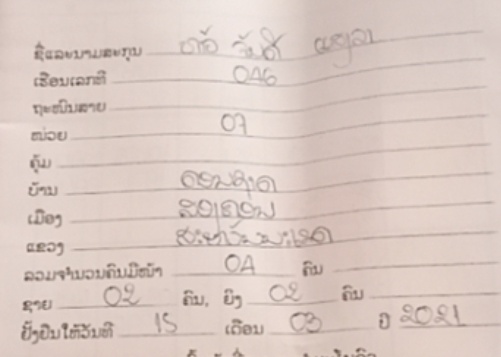 ຊື່ແລະນາມສະກຸນ ທ້າວ ຈັນດີ
ເຮືອນເລກທີ 046
ຖະໜົນສາຍ
ໜ່ວຍ 07
ຄຸ້ມ
ບ້ານ ດອນຊາດ
ເມືອງ ສອງຄອນ
ແຂວງ ສະຫວັນນະເຂດ
ລວມຈຳນວນຄົນມີໜ້າ 04 ຄົນ
ຊາຍ 02 ຄົນ, ຍິງ 02 ຄົນ
ຢັ້ງຢືນໃຫ້ວັນທີ 15 ເດືອນ 03 ປີ 2021